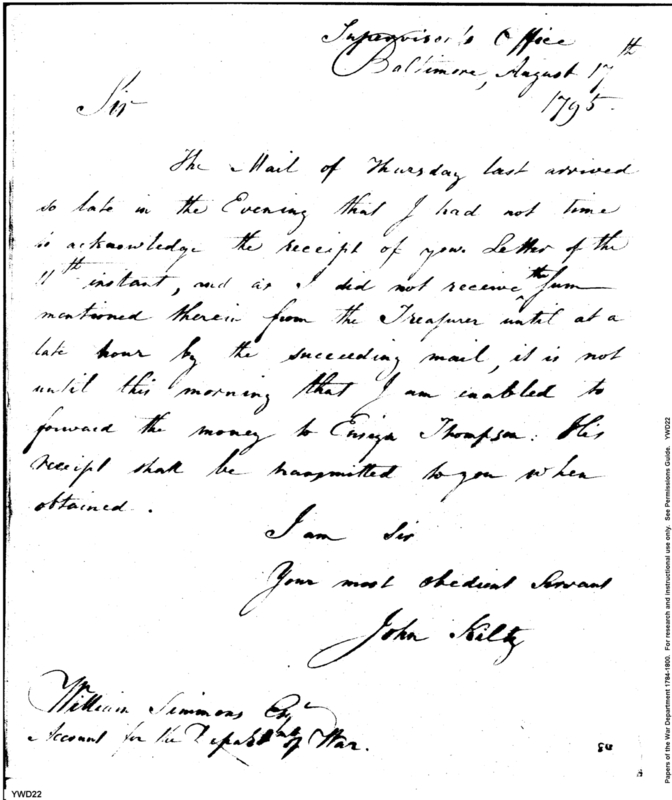 Supervisor's Office
Baltimore, August 17th
1795.
Sir
The Mail of Thursday last arrived
so late in the Evening that I had not time
to acknowledge the receipt of your Letter of the
11th instant, and as I did not receive the Sum
mentioned therein from the Treasurer until at a
late hour by the succeeding mail, it is not
until this morning that I am enabled to
forward the money to Ensign Thompson: His
receipt shall be transmitted to you when
obtained.
I am Sir
Your most obedient Servant
John Kilty
William Simmons Esqr
Account for the Department of War.
Papers of the War Department 1784-1800. For research and instructional use only. See Permissions Guide. YWD22
YWD22